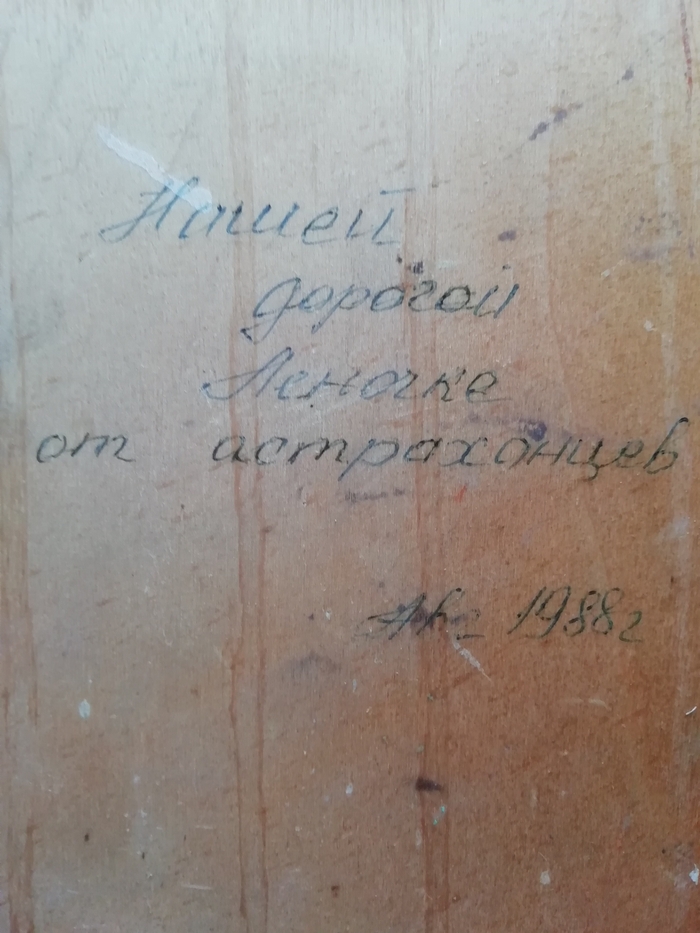 Нашей
дорогой
Леночке
от астраханцев
Авг 1988г